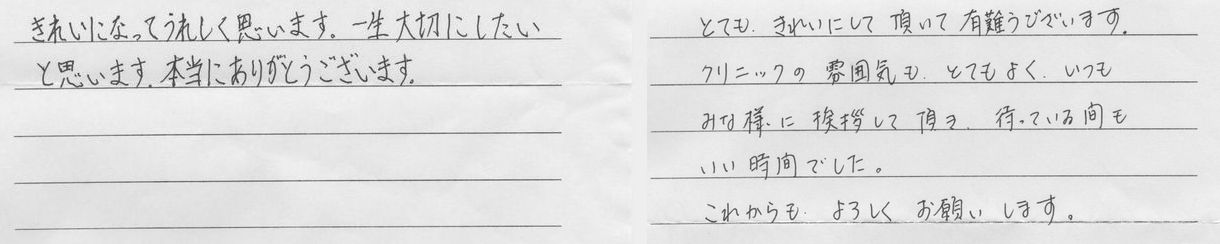 きれいになってうれしく思います。一生大切にしたい
と思います。本当にありがとうございます。
とても、きれいにして頂いて有難うございます。
クリニックの雰囲気も、とてもよく、いつも
みな様に挨拶して頂き、待っている間も
いい時間でした。
これからも、よろしくお願いします。